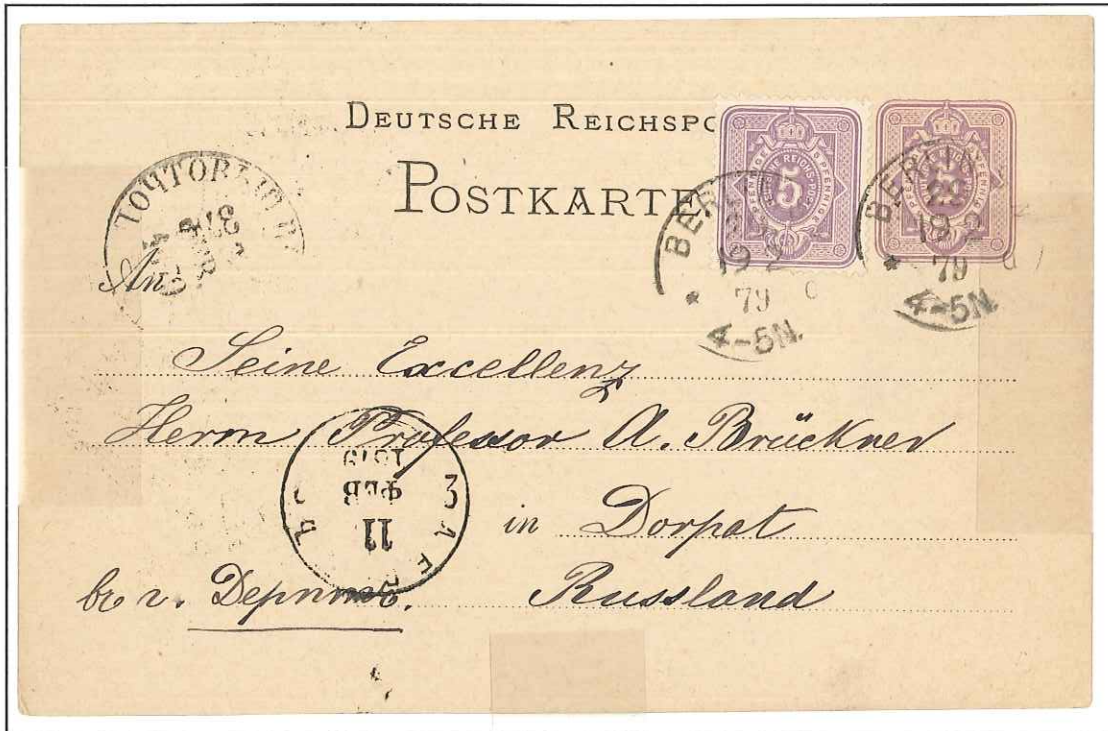 DEUTSCHE REICHSPO
POSTKARTE
5
BERLIN
19 2
79
4-5N.
BERLIN
19 2
79
4-5N.
An
Seine Excellenz
Herrn Professor A. Brückner
in Dorpat
Russland
въ г. Дерптъ.
11
ФЕВ
1879
3